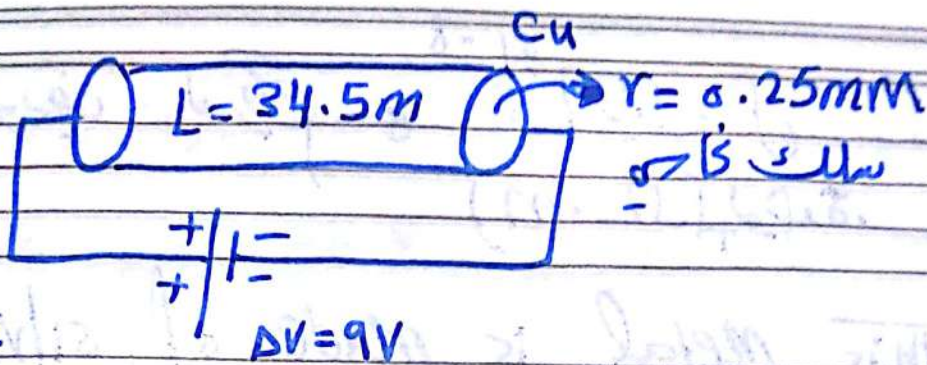 Cu
L = 34.5m r = 0.25mm
سلك
+ -
+ -
ΔV = 9V